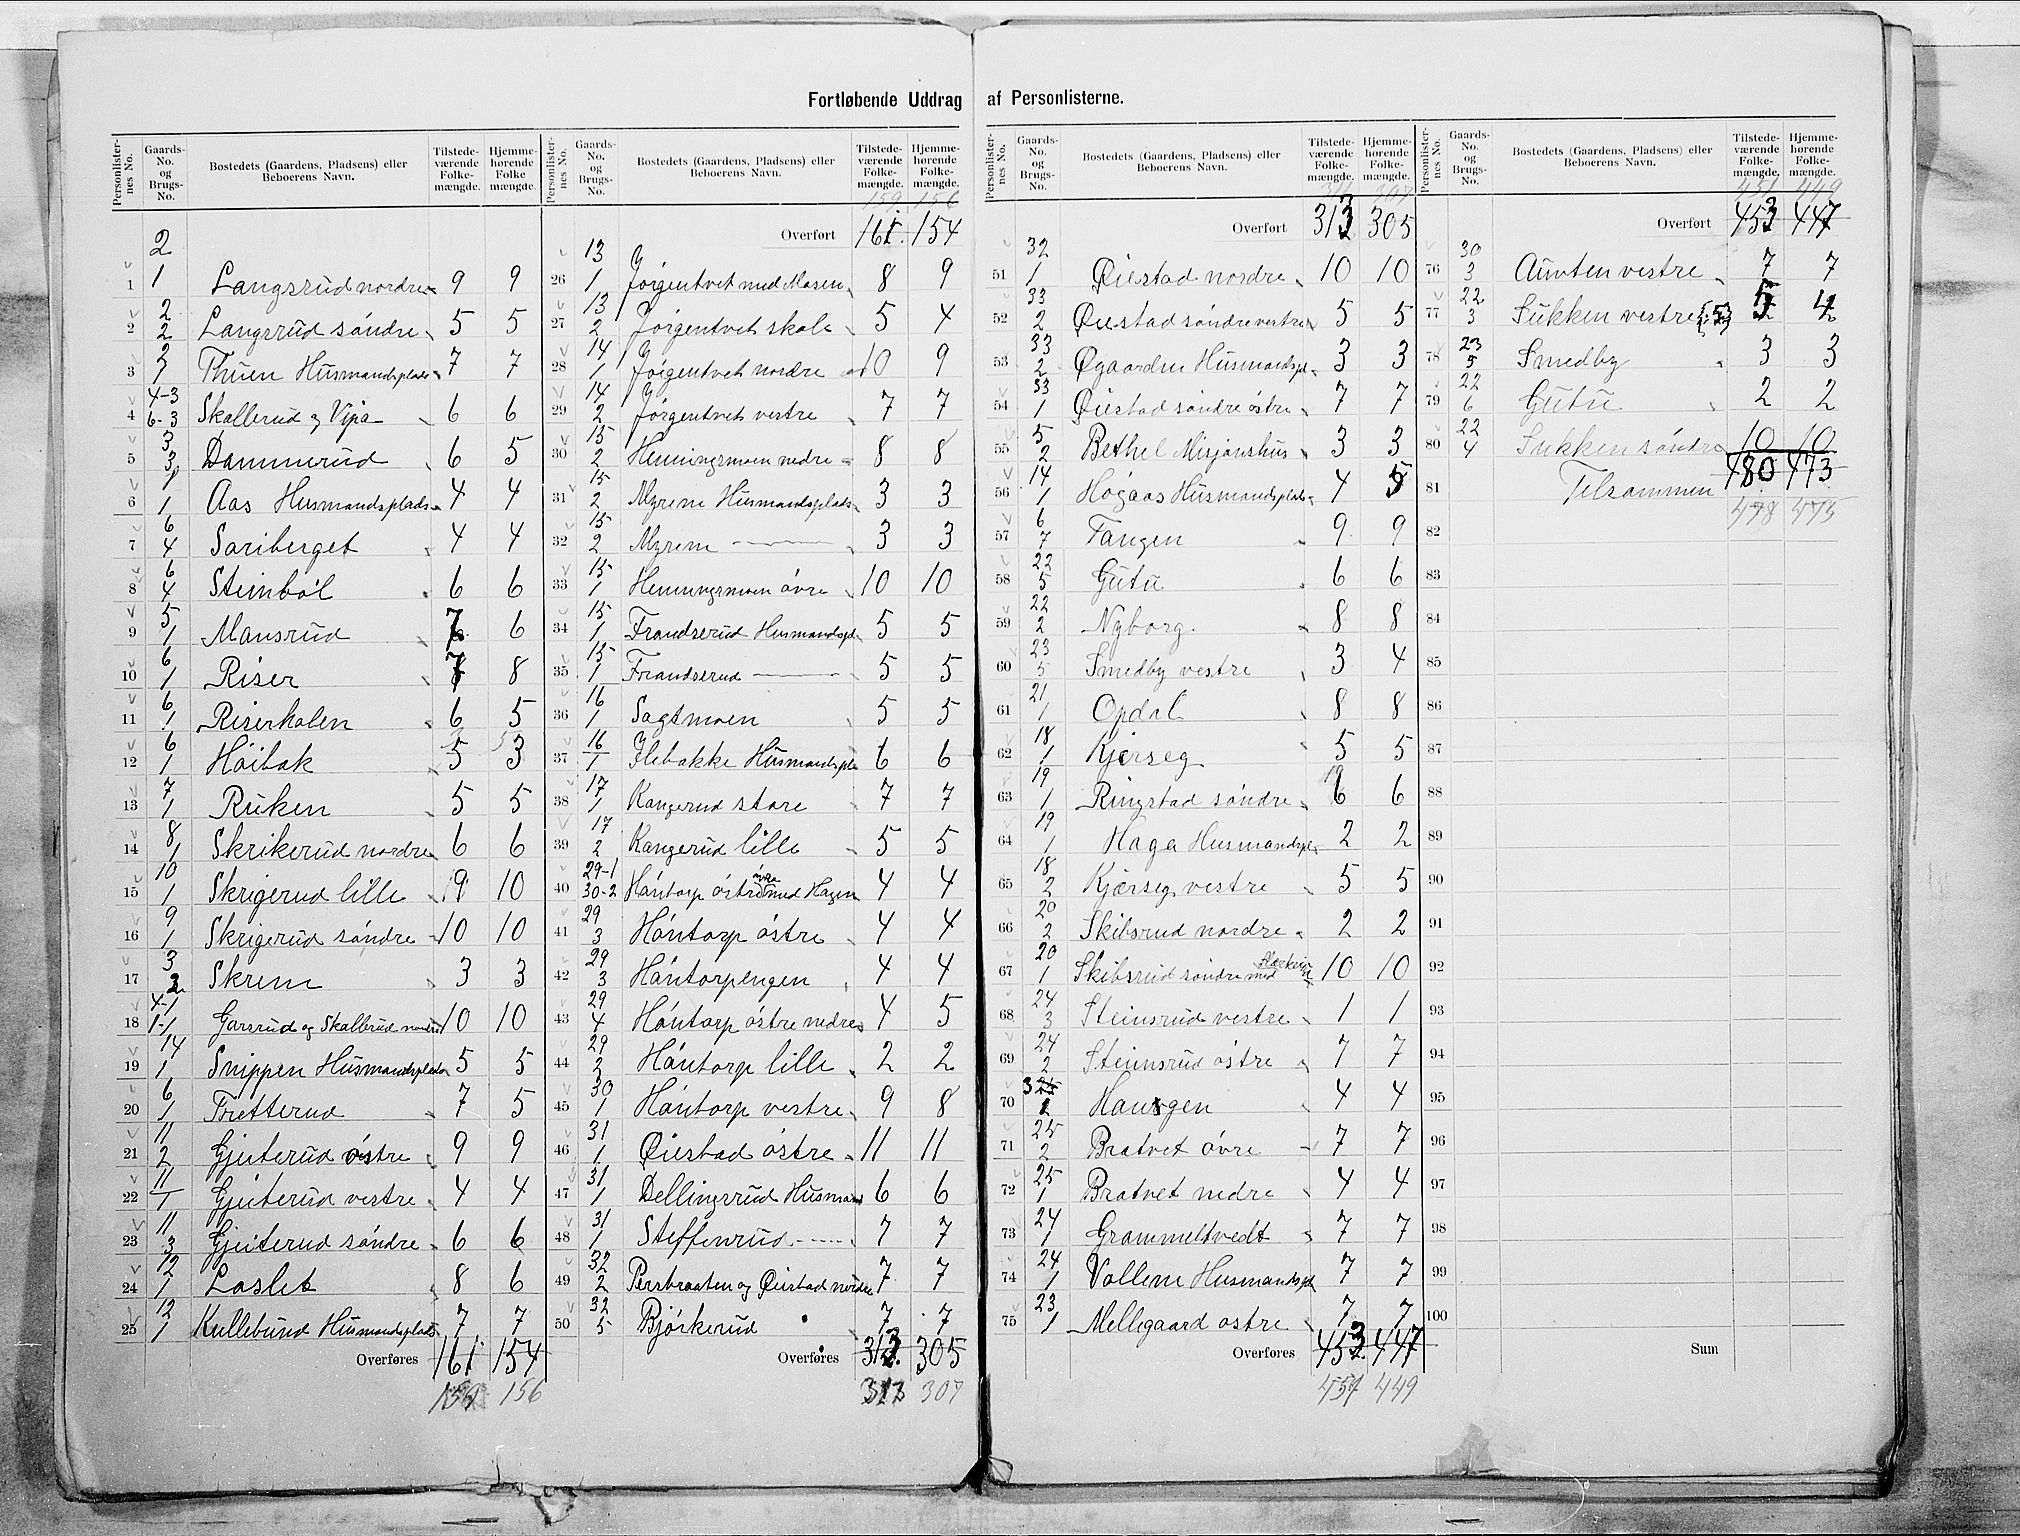 Fortløbende Uddrag af Personlisterne.
Personlister- nes No. | Gaards- No. og Brugs- No. | Bostedets (Gaardens, Pladsens) eller Beboerens Navn. | Tilstede- værende Folke- mængde. | Hjemme- hørende Folke mængde.
1 | 2 1 | Langsrud nordre | 9 | 9
2 | 2 2 | Langsrud søndre | 5 | 5
3 | 2 1 | Thuen Husmandsplads | 7 | 7
4 | 4-3 6-3 | Skallerud og Vipa | 6 | 6
5 | 3 3 | Dammerud | 6 | 5
6 | 1 1 | Aas Husmandsplads | 4 | 4
7 | 6 4 | Sariberget | 4 | 4
8 | 6 4 | Steinbøl | 6 | 6
9 | 5 1 | Mansrud | 7 | 6
10 | 6 1 | Riser | 7 | 8
11 | 6 1 | Riserkolen | 6 | 5
12 | 6 1 | Høibak | 5 | 3
13 | 7 1 | Ruken | 5 | 5
14 | 8 1 | Skrikerud nordre | 6 | 6
15 | 10 1 | Skrigerud lille | 9 | 10
16 | 9 1 | Skrigerud søndre | 10 | 10
17 | 3 2 | Skrem | 3 | 3
18 | 4-1 1-1 | Garsrud og Skallerud nordre | 10 | 10
19 | 14 1 | Snippen Husmandsplads | 5 | 5
20 | 6 1 | Tretterud | 7 | 5
21 | 11 2 | Gjuterud østre | 9 | 9
22 | 11 1 | Gjuterud vestre | 4 | 4
23 | 11 3 | Gjuterud søndre | 6 | 6
24 | 12 1 | Laslet | 8 | 6
25 | 12 1 | Kullebund Husmandsplads | 7 | 7
Overføres | 161 | 154
159 | 156
Personlister- nes No. | Gaards- No. og Brugs- No. | Bostedets (Gaardens, Pladsens) eller Beboerens Navn. | Tilstede- værende Folke- mængde. | Hjemme- hørende Folke- mængde.
159 | 156
Overført | 161 | 154
26 | 13 1 | Jørgentvet med Mosen | 8 | 9
27 | 13 2 | Jørgentvet skole | 5 | 4
28 | 14 1 | Jørgentvet nordre | 10 | 9
29 | 14 2 | Jørgentvet vestre | 7 | 7
30 | 15 2 | Henningsmoen nedre | 8 | 8
31 | 15 2 | Myrene Husmandsplads | 3 | 3
32 | 15 2 | Myrene | 3 | 3
33 | 15 1 | Henningsmoen øvre | 10 | 10
34 | 15 1 | Frandserud Husmandspl. | 5 | 5
35 | 15 1 | Frandserud | 5 | 5
36 | 16 1 | Sagtmoen | 5 | 5
37 | 16 1 | Ilebakke Husmandspl | 6 | 6
38 | 17 1 | Kangerud store | 7 | 7
39 | 17 2 | Kangerud lille | 5 | 5
40 | 29-1 30-2 | Høntorp østre øvre med Hagen | 4 | 4
41 | 29 3 | Høntorp østre | 4 | 4
42 | 29 3 | Høntorpengen | 4 | 4
43 | 29 4 | Høntorp østre nedre | 4 | 5
44 | 29 2 | Høntorp lille | 2 | 2
45 | 30 1 | Høntorp vestre | 9 | 8
46 | 31 1 | Øiestad østre | 11 | 11
47 | 31 1 | Dellingsrud Husmand | 6 | 6
48 | 31 1 | Steffenrud | 7 | 7
49 | 32 2 | Persbraaten og Øiestad nordre | 7 | 7
50 | 32 5 | Bjørkerud | 7 | 7
Overføres | 313 | 305
307
Personlister- nes No. | Gaards- No. og Brugs- No. | Bostedets (Gaardens, Pladsens) eller Beboerens Navn. | Tilstede- værende Folke- mængde. | Hjemme- hørende Folke- mængde.
311 | 307
Overført | 313 | 305
51 | 32 1 | Øiestad nordre | 10 | 10
52 | 33 2 | Øiestad søndre vestre | 5 | 5
53 | 33 2 | Øgaarden Husmandspl. | 3 | 3
54 | 33 1 | Øiestad søndre østre | 7 | 7
55 | 5 2 | Bethel Misjonshus | 3 | 3
56 | 14 1 | Høgaas Husmandsplads | 4 | 5
57 | 6 7 | Tangen | 9 | 9
58 | 22 5 | Gutu | 6 | 6
59 | 22 2 | Nyborg | 8 | 8
60 | 23 5 | Smedby vestre | 3 | 4
61 | 21 1 | Opdal | 8 | 8
62 | 18 1 | Kjerseg | 5 | 5
63 | 19 1 | Ringstad søndre | 6 | 6
64 | 19 1 | Haga Husmandspl | 2 | 2
65 | 18 2 | Kjærseg vestre | 5 | 5
66 | 20 2 | Skibsrud nordre | 2 | 2
67 | 20 1 | Skibsrud søndre med | 10 | 10
68 | 24 3 | Steinsrud vestre | 1 | 1
69 | 24 2 | Steinsrud østre | 7 | 7
70 | 2 | Haugen | 4 | 4
71 | 25 2 | Bratvet øvre | 7 | 7
72 | 25 1 | Bratvet nedre | 4 | 4
73 | 24 1 | Grammeltvedt | 7 | 7
74 | 24 1 | Vollene Husmandspl | 7 | 7
75 | 23 1 | Mellegaard østre | 7 | 7
Overføres | 453 | 447
451 | 449
Personlister- nes No. | Gaards- No. og Brugs- No. | Bostedets (Gaardens, Pladsens) eller Beboerens Navn. | Tilstede- værende Folke- mængde. | Hjemme- hørende Folke- mængde.
451 | 449
Overført | 453 | 447
76 | 30 3 | Aunten vestre | 7 | 7
77 | 22 3 | Sukken vestre | 5 | 4
78 | 23 5 | Smedby | 3 | 3
79 | 22 6 | Gutu | 2 | 2
80 | 22 4 | Sukken søndre | 10 | 10
81 | Tilsammen | 480 | 473
478 | 475
82
83
84
85
86
87
88
89
90
91
92
93
94
95
96
97
98
99
100
Sum